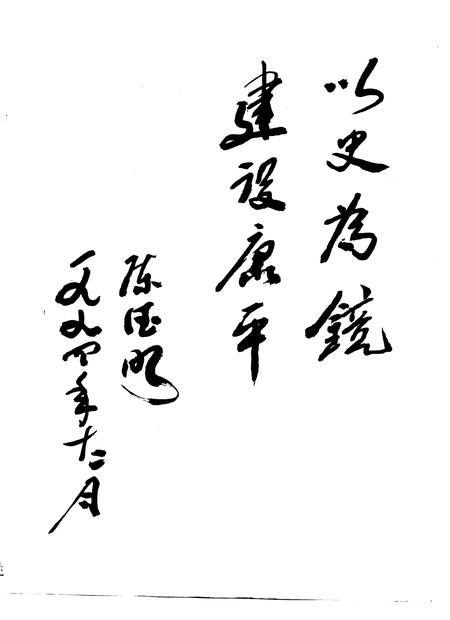 以史為鏡
建設康平
陈德明
一九九四年十二月